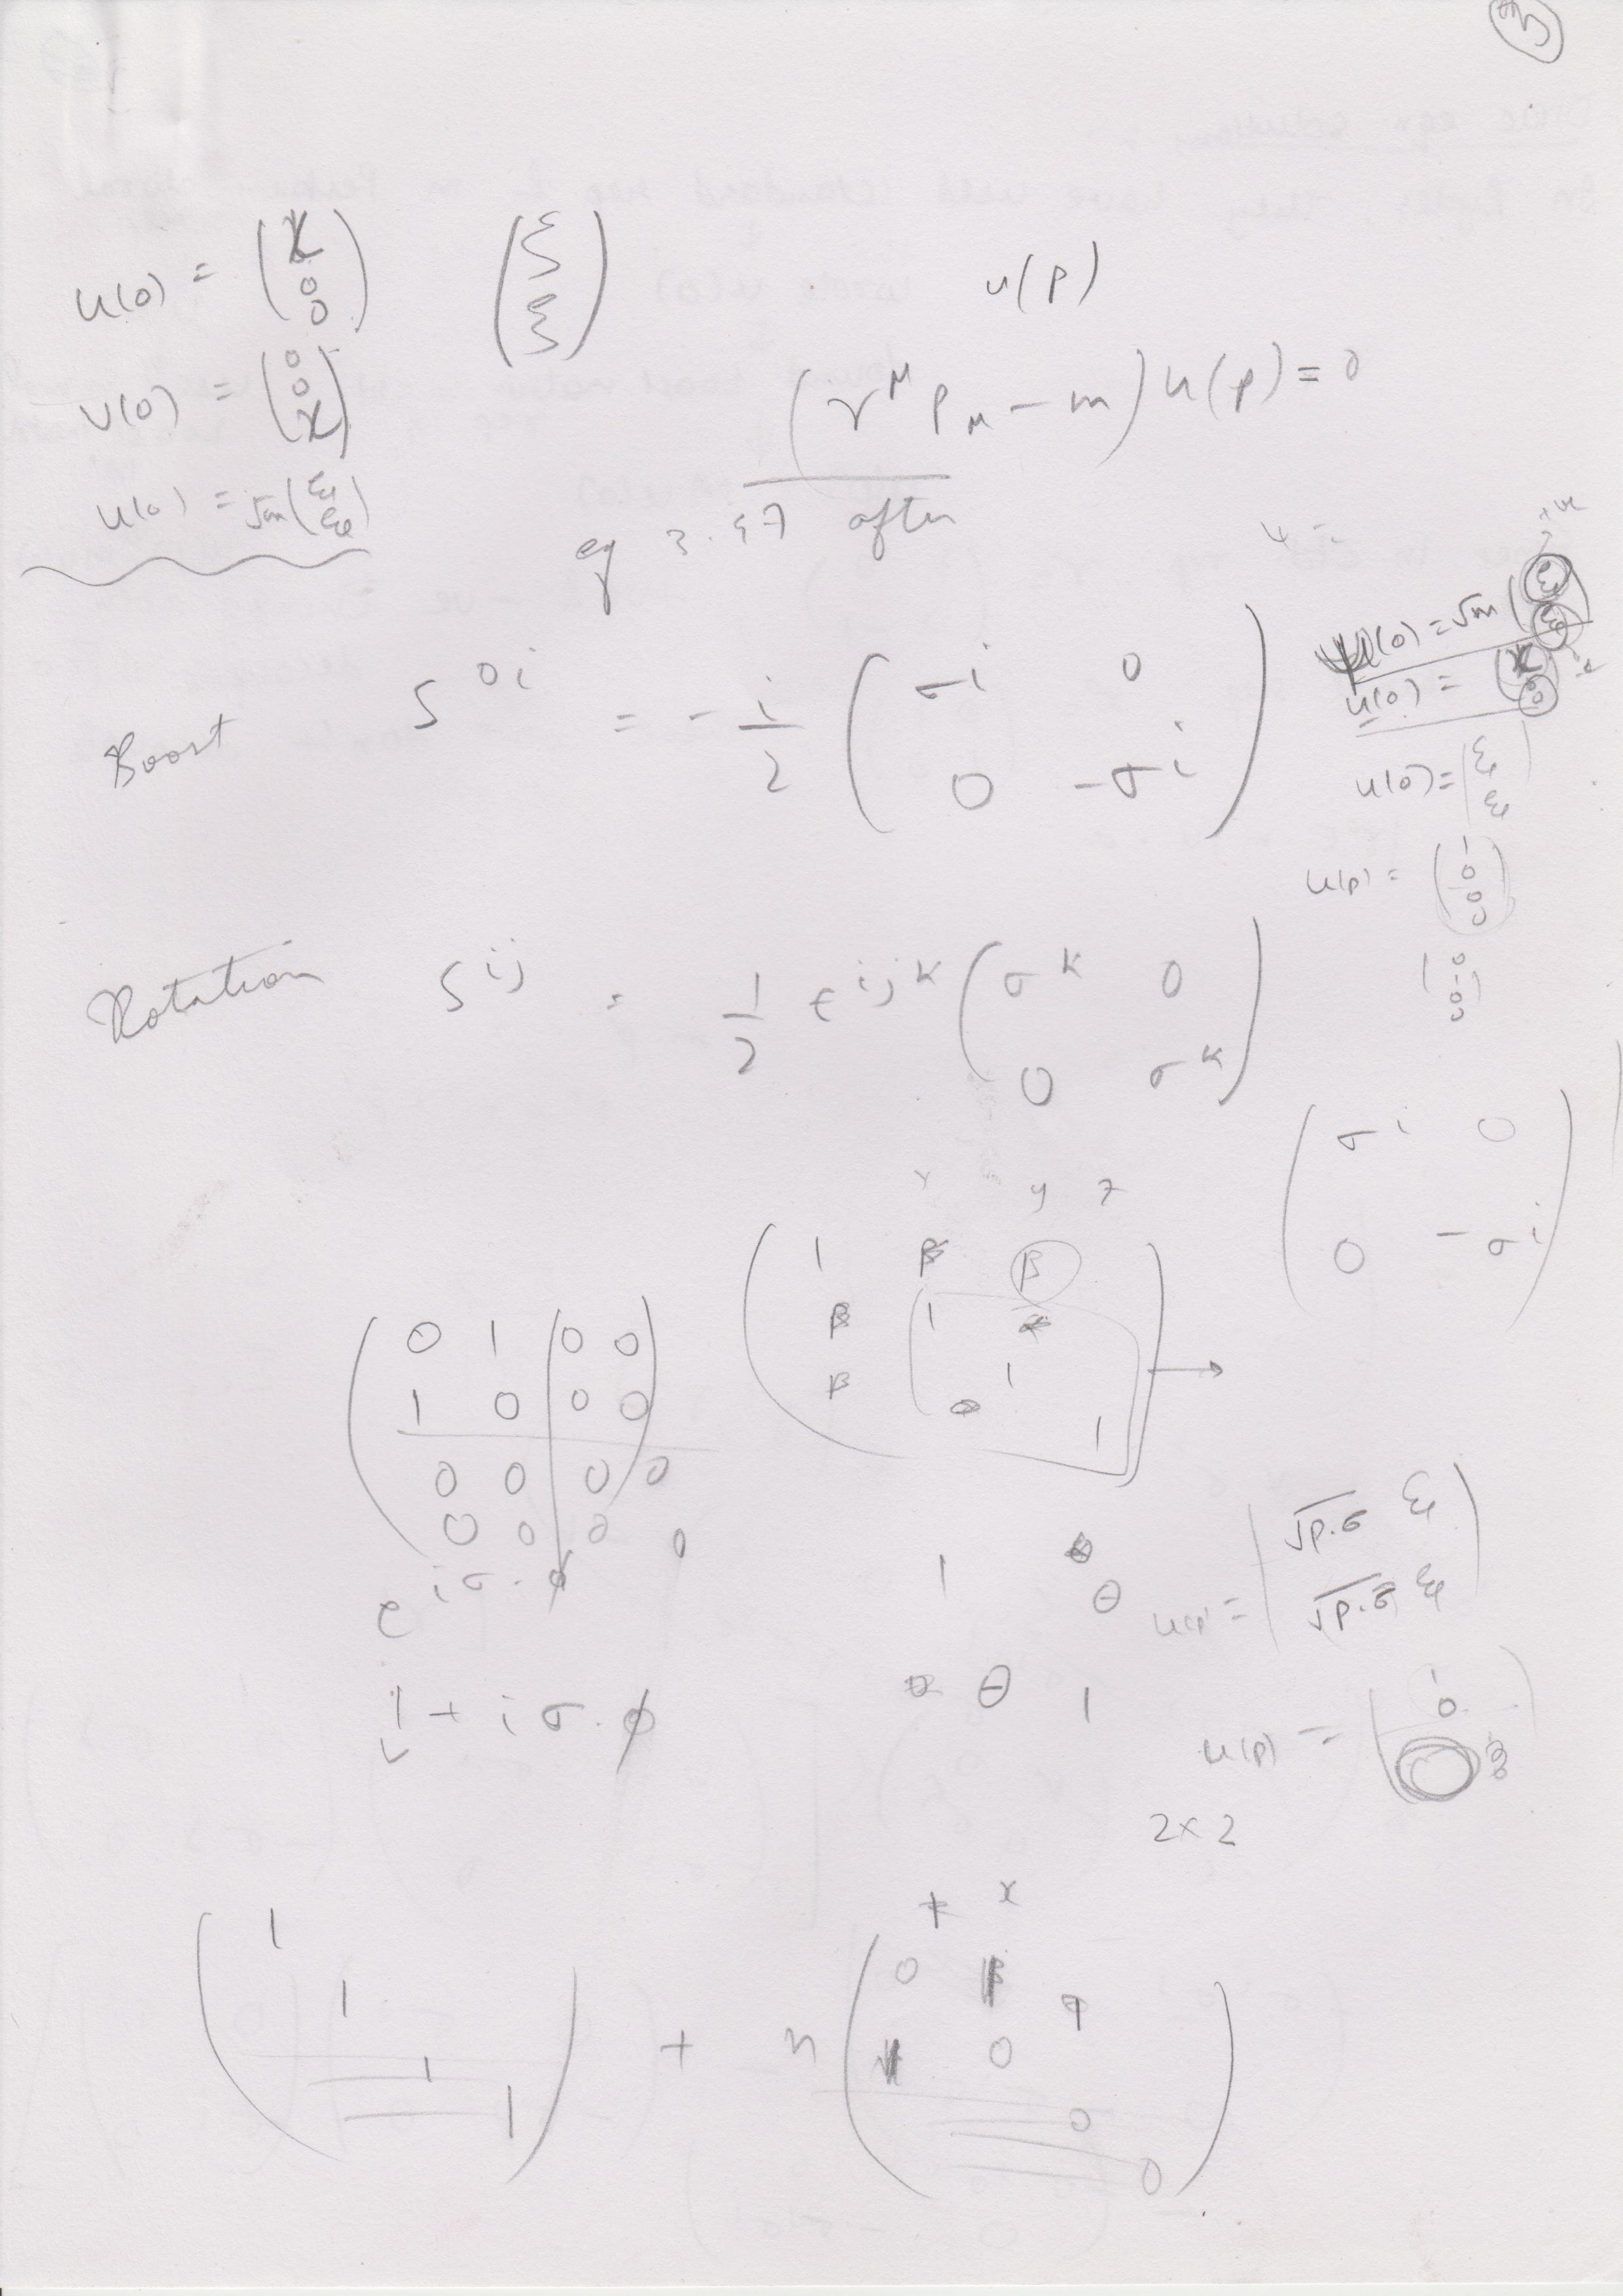 3
u(0) = ( χ 0 0 )
( ξ ξ )
u(p)
v(0) = ( 0 0 χ )
( γ^μ p_μ - m ) u(p) = 0
u(0) = √m ( ξ ξ )
eq 3.47 after
u(0) = √m ( ξ ξ )
u(0) = ( χ 0 )
Boost S^{0i} = - i/2 ( σ^i 0
0 -σ^i )
u(0) = ( ξ ξ )
u(p) = ( 1 0 0 0 )
Rotation S^{ij} = 1/2 ε^{ijk} ( σ^k 0
0 σ^k )
( σ^i 0
0 -σ^i )
y z
( 1 β β
β 1
β 1
1 ) →
( 0 1 0 0
1 0 0 0
0 0 0 0
0 0 0 0 )
e^{iσ·φ}
1 + iσ·φ
1 θ
θ 1
u(p) = ( √p·σ ξ
√p·σ̄ ξ )
u(p) = ( 1 0
2×2
x
( 1
1
1
1 ) + η ( 0 β
0
0
0 )